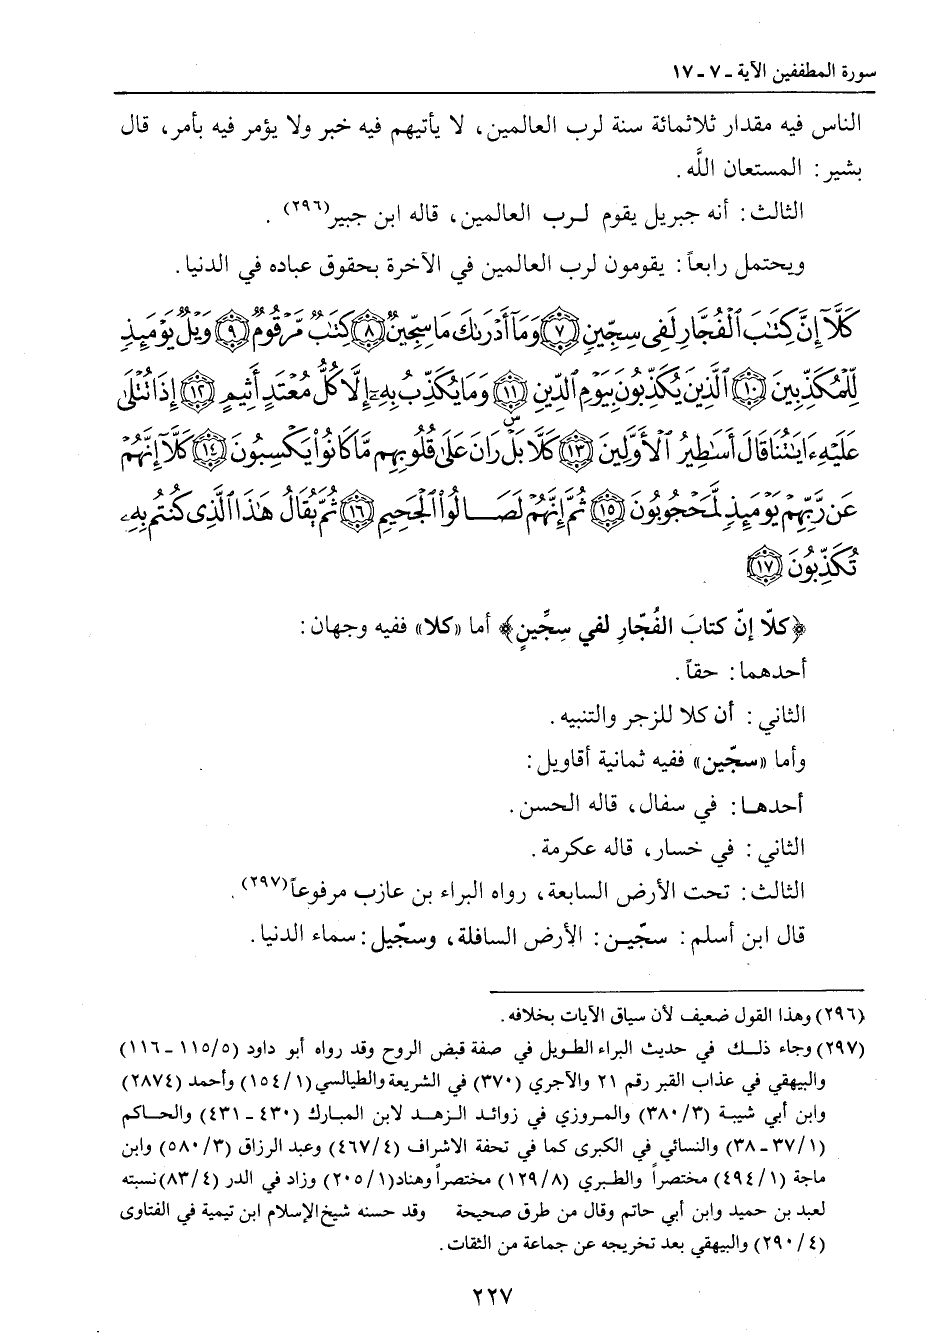 سورة المطففين الآية ـ ٧ ـ ١٧
الناس فيه مقدار ثلاثمائة سنة لرب العالمين، لا يأتيهم فيه خبر ولا يؤمر فيه بأمر، قال
بشير: المستعان اللَّه.
الثالث: أنه جبريل يقوم لـرب العالمين، قاله ابن جبير(٢٩٦).
ويحتمل رابعاً: يقومون لرب العالمين في الآخرة بحقوق عباده في الدنيا.
كَلَّآ إِنَّ كِتَٰبَ ٱلْفُجَّارِ لَفِى سِجِّينٍ ﴿٧﴾ وَمَآ أَدْرَىٰكَ مَا سِجِّينٌ ﴿٨﴾ كِتَٰبٌ مَّرْقُومٌ ﴿٩﴾ وَيْلٌ يَوْمَئِذٍ
لِّلْمُكَذِّبِينَ ﴿١٠﴾ ٱلَّذِينَ يُكَذِّبُونَ بِيَوْمِ ٱلدِّينِ ﴿١١﴾ وَمَا يُكَذِّبُ بِهِۦٓ إِلَّا كُلُّ مُعْتَدٍ أَثِيمٍ ﴿١٢﴾ إِذَا تُتْلَىٰ
عَلَيْهِ ءَايَٰتُنَا قَالَ أَسَٰطِيرُ ٱلْأَوَّلِينَ ﴿١٣﴾ كَلَّا بَلْ ۜ رَانَ عَلَىٰ قُلُوبِهِم مَّا كَانُوا۟ يَكْسِبُونَ ﴿١٤﴾ كَلَّآ إِنَّهُمْ
عَن رَّبِّهِمْ يَوْمَئِذٍ لَّمَحْجُوبُونَ ﴿١٥﴾ ثُمَّ إِنَّهُمْ لَصَالُوا۟ ٱلْجَحِيمِ ﴿١٦﴾ ثُمَّ يُقَالُ هَٰذَا ٱلَّذِى كُنتُم بِهِۦ
تُكَذِّبُونَ ﴿١٧﴾
﴿كلّا إنّ كتابَ الفُجّارِ لفي سِجِّينٍ﴾ أما «كلا» ففيه وجهان:
أحدهما: حقاً.
الثاني: أن كلا للزجر والتنبيه.
وأما «سجّين» ففيه ثمانية أقاويل:
أحدهـا: في سفال، قاله الحسن.
الثاني: في خسار، قاله عكرمة.
الثالث: تحت الأرض السابعة، رواه البراء بن عازب مرفوعاً(٢٩٧).
قال ابن أسلم: سجّيـن: الأرض السافلة، وسجّيل: سماء الدنيا.
(٢٩٦) وهذا القول ضعيف لأن سياق الآيات بخلافه.
(٢٩٧) وجاء ذلـك في حديث البراء الطويل في صفة قبض الروح وقد رواه أبو داود (١١٥/٥ ـ ١١٦)
والبيهقي في عذاب القبر رقم ٢١ والآجري (٣٧٠) في الشريعة والطيالسي (١٥٤/١) وأحمد (٢٨٧٤)
وابن أبي شيبة (٣٨٠/٣) والمـروزي في زوائد الـزهـد لابن المبارك (٤٣٠ ـ ٤٣١) والحـاكم
(٣٧/١ ـ ٣٨) والنسائي في الكبرى كما في تحفة الاشراف (٤٦٧/٤) وعبد الرزاق (٥٨٠/٣) وابن
ماجة (٤٩٤/١) مختصراً والطبري (١٢٩/٨) مختصراً وهناد(٢٠٥/١) وزاد في الدر (٨٣/٤)نسبته
لعبد بن حميد وابن أبي حاتم وقال من طرق صحيحة وقد حسنه شيخ الإسلام ابن تيمية في الفتاوى
(٢٩٠/٤) والبيهقي بعد تخريجه عن جماعة من الثقات.
٢٢٧